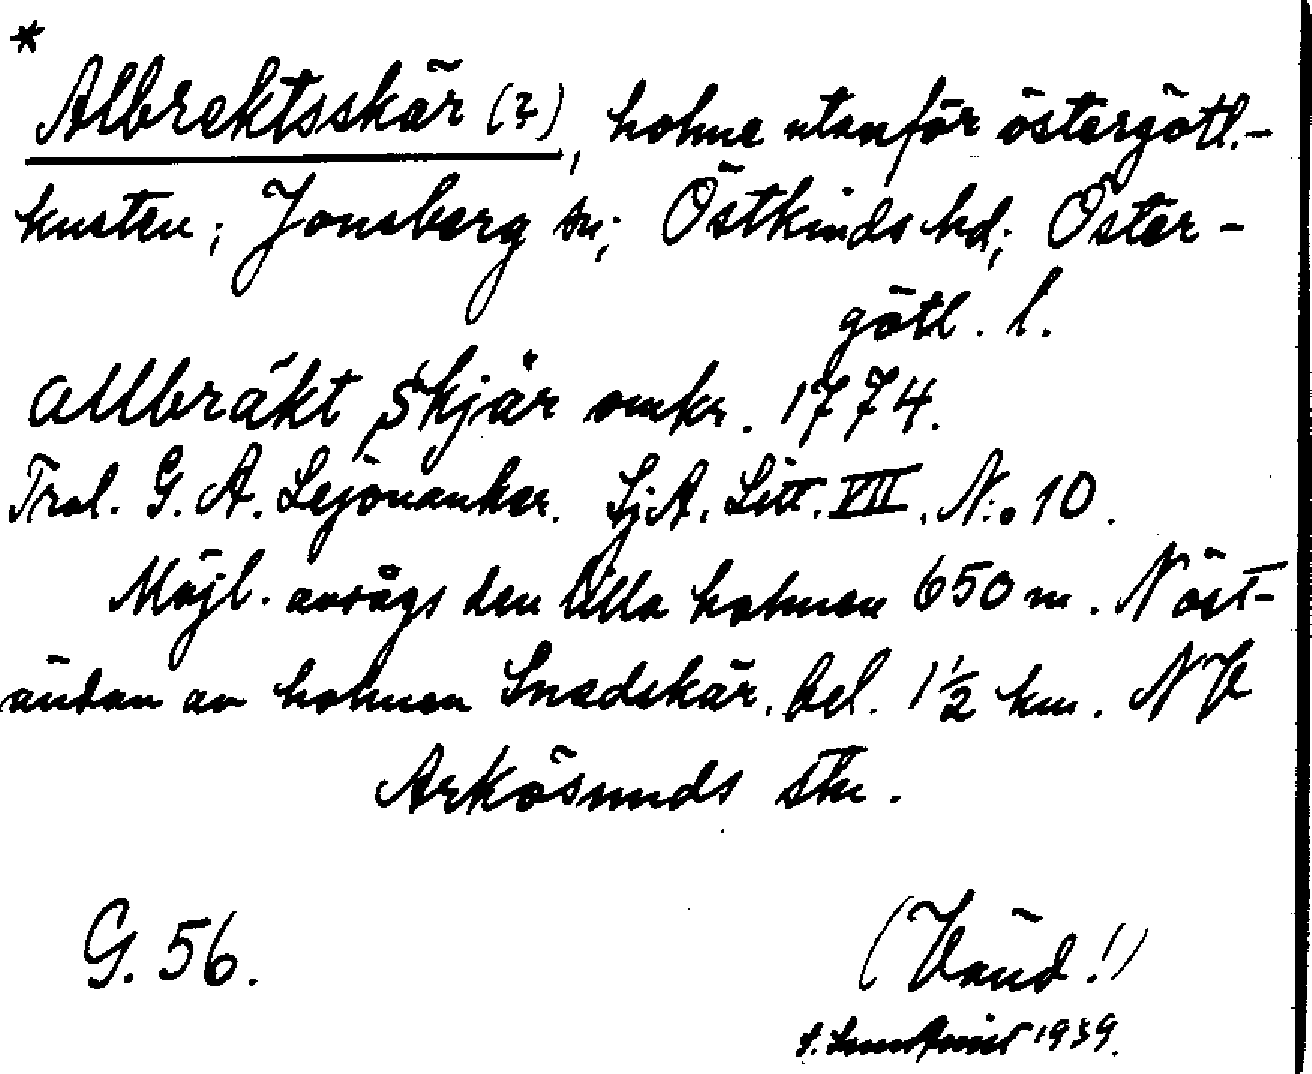 *
Albrektsskär (?), holme utanför östergötl.-
kusten; Jonsberg sn; Östkinds hd; Öster-
götl. l.
Allbräkt Skjär omkr. 1774.
Trol. G. A. Lejonanker. SjA. Litt. VII. N:o 10.
Möjl. avsågs den lilla holmen 650 m. N öst-
ändan av holmen Snedskär. bel. 1½ km. NV
Arkösunds stn.
G. 56.
(Vänd!)
1939.